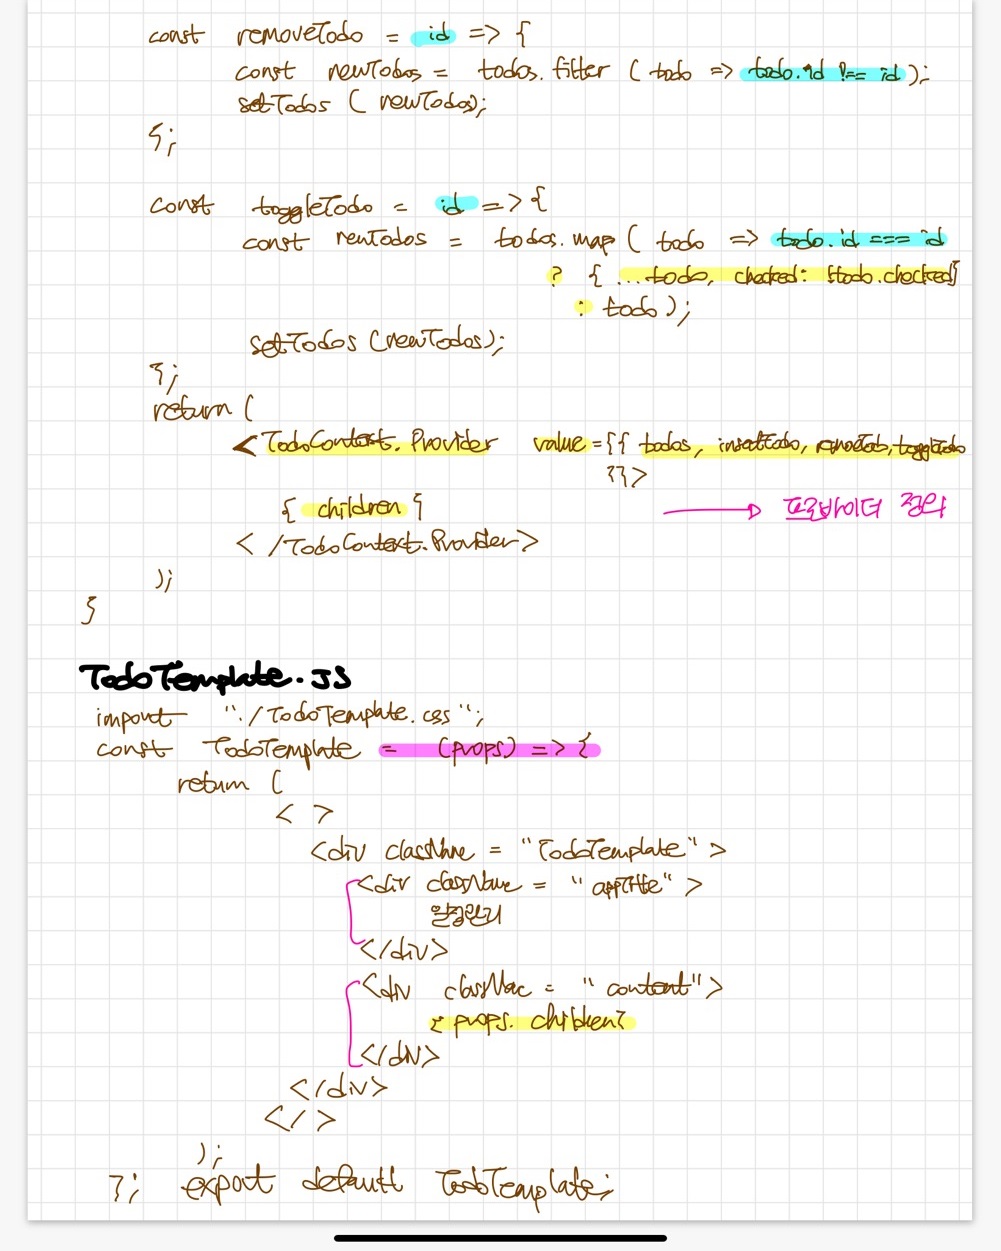 const removeTodo = id => {
const newTodos = todos.filter ( todo => todo.id !== id );
setTodos ( newTodos);
};
const toggleTodo = id => {
const newTodos = todos.map ( todo => todo.id === id
? { ...todo, checked: !todo.checked}
: todo );
setTodos (newTodos);
};
return (
< TodoContext.Provider value ={{ todos, insertTodo, removeTodo, toggleTodo
}}>
{ children }
프로바이더 정의
< /TodoContext.Provider>
);
}
TodoTemplate.JS
import "./TodoTemplate.css";
const TodoTemplate = (props) => {
return (
< >
<div className = "TodoTemplate" >
<div className = "appTitle" >
일정관리
</div>
<div className = "content">
{ props. children}
</div>
</div>
</ >
);
}; export default TodoTemplate;